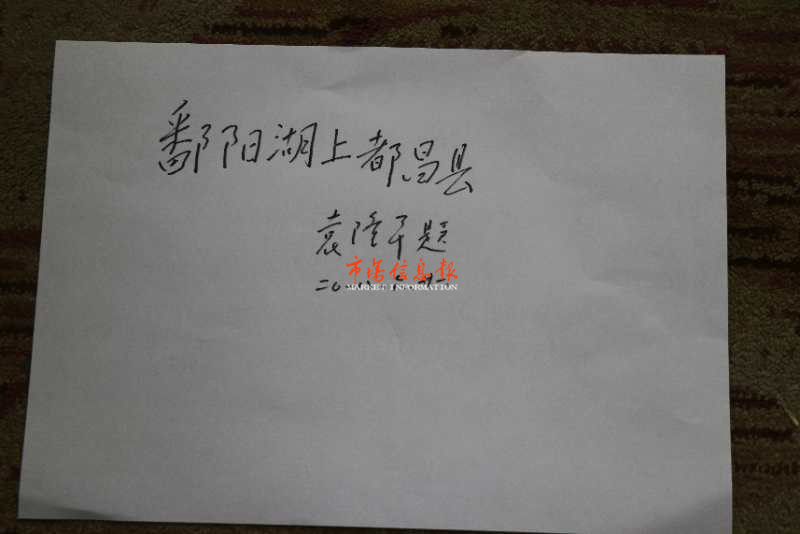 鄱阳湖上都昌县
袁隆平题
市场信息报
MARKET INFORMATION